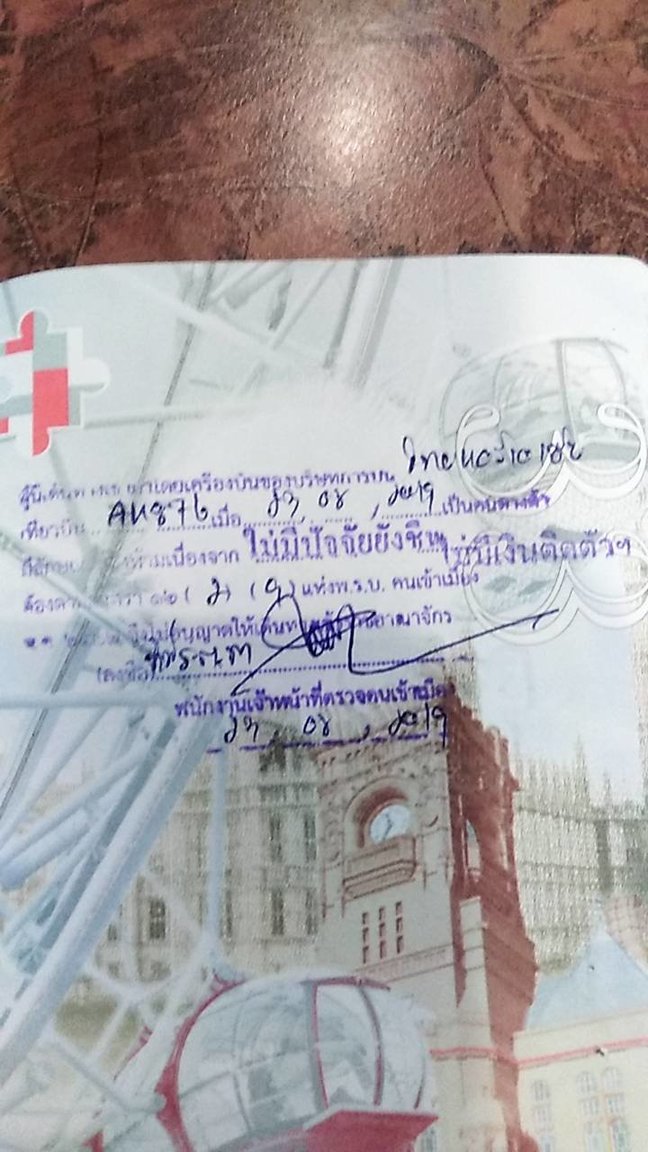 เดินทางเข้ามาโดยเครื่องบินของบริษัทการบิน
เที่ยวบิน AK876 เมื่อ 23, 08, 2019 เป็นคนต่างด้าว
เนื่องจาก ไม่มีปัจจัยยังชีพ ไม่มีเงินติดตัวฯ
ต้องตาม ๑๒ ( 2 ) ( 9 ) แห่งพ.ร.บ. คนเข้าเมือง
พ.ศ. ๒๕๒๒ จึงไม่อนุญาตให้เดินทาง ราชอาณาจักร
(ลงชื่อ)
พนักงานเจ้าหน้าที่ตรวจคนเข้าเมือง
23, 08, 2019